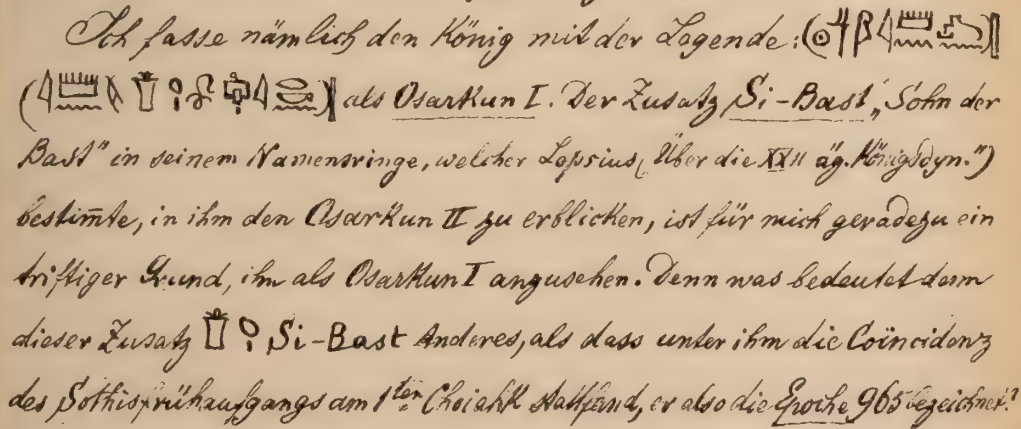 Ich fasse nämlich den König mit der Legende:
als Osarkun I. Der Zusatz Si-Bast „Sohn der
Bast" in seinem Namensringe, welcher Lepsius („Über die XXII äg. Königsdyn.")
bestim̄te, in ihm den Osarkun II zu erblicken, ist für mich geradezu ein
triftiger Grund, ihn als Osarkun I anzusehen. Denn was bedeutet denn
dieser Zusatz Si-Bast Anderes, als dass unter ihm die Coïncidenz
des Sothisfrühaufgangs am 1ten Choiahk stattfand, er also die Epoche 965 bezeichnet?